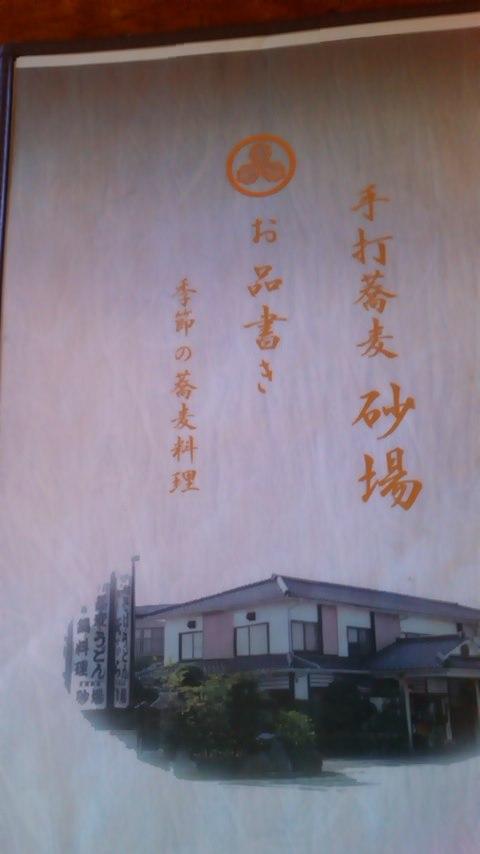 手打蕎麦 砂場
お品書き
季節の蕎麦料理
うどん
鍋料理
砂場